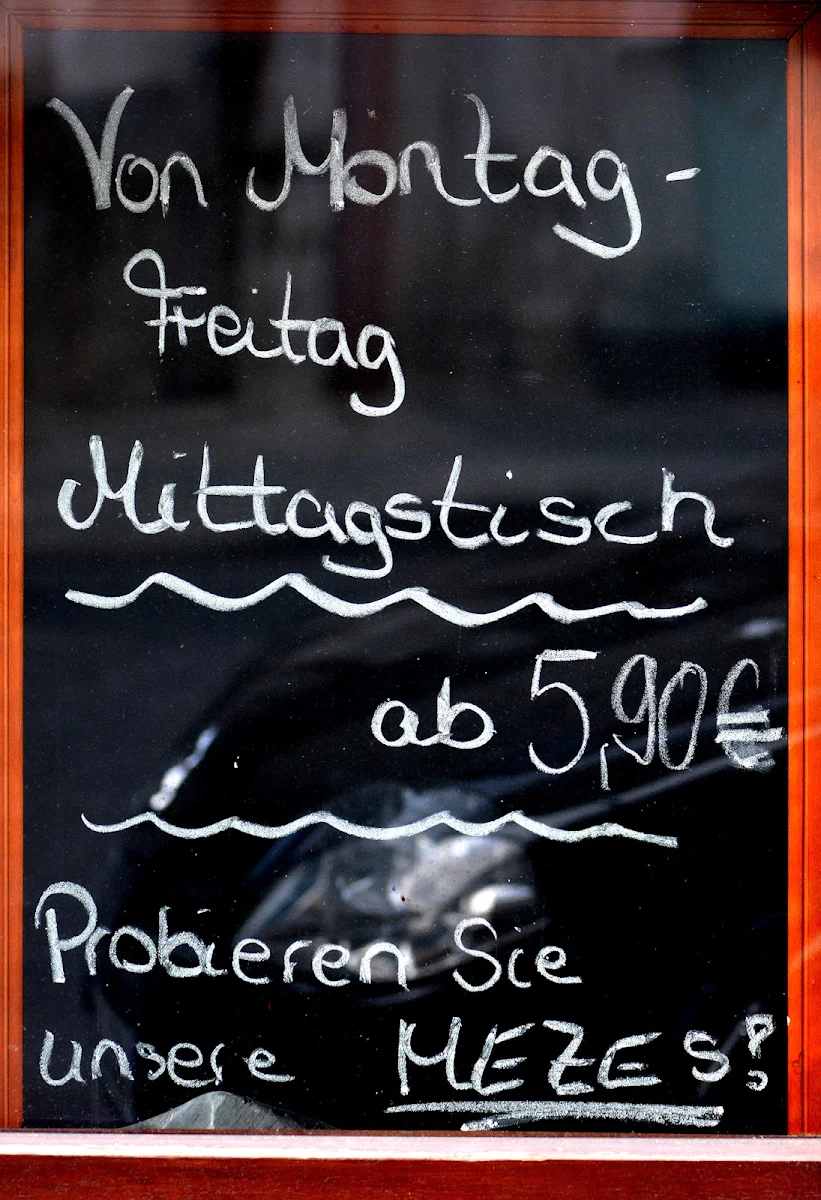 Von Montag -
Freitag
Mittagstisch
ab 5,90€
Probieren Sie
unsere MEZES!